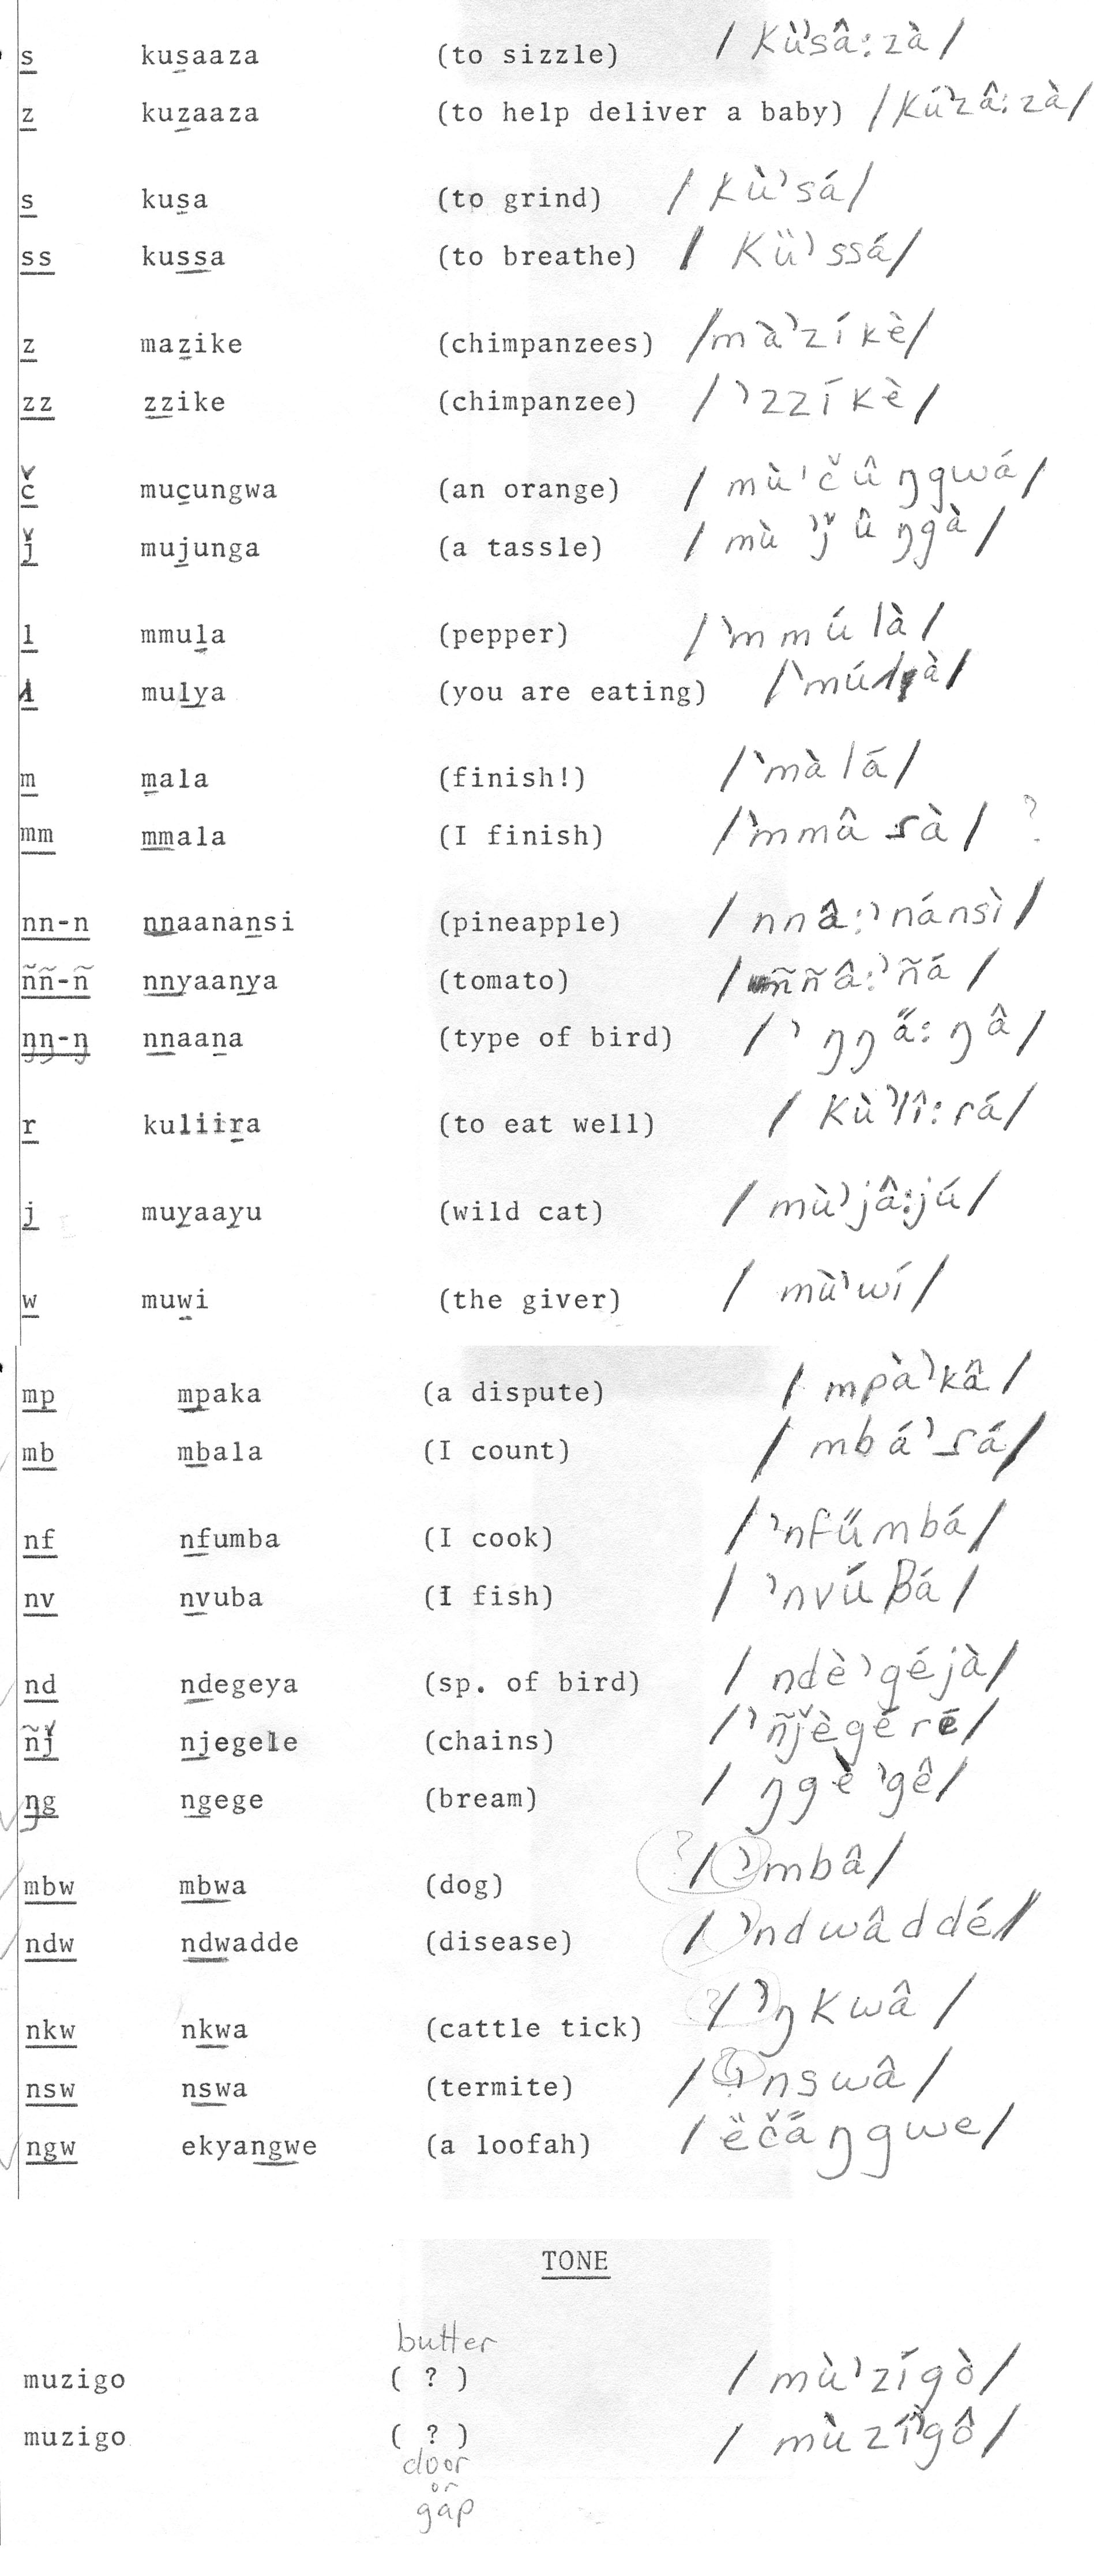 s kusaaza (to sizzle) /kù'sâ:zà/
z kuzaaza (to help deliver a baby) /kú'zâ:zà/
s kusa (to grind) /kù'sá/
ss kussa (to breathe) /kü'ssá/
z mazike (chimpanzees) /mà'zíkè/
zz zzike (chimpanzee) /'zzíkè/
č mucungwa (an orange) /mù'čûŋgwá/
ǰ mujunga (a tassle) /mù'ǰûŋgà/
l mmula (pepper) /'mmúlà/
mulya (you are eating)
m mala (finish!) /'màlá/
mm mmala (I finish) /'mmâɾà/ ?
nn-n nnaanansi (pineapple) /nnâ:'nánsì/
ññ-ñ nnyaanya (tomato) /ññâ:'ñá/
ŋŋ-ŋ nnaana (type of bird) /'ŋŋa̋:ŋâ/
r kuliira (to eat well) /kù'lî:rá/
j muyaayu (wild cat) /mù'jâ:jú/
w muwi (the giver) /mù'wí/
mp mpaka (a dispute) /mpà'kâ/
mb mbala (I count) /mbá'ɾá/
nf nfumba (I cook) /'nfűmbá/
nv nvuba (I fish) /'nvúβá/
nd ndegeya (sp. of bird) /ndè'géjà/
ñǰ njegele (chains) /'ñǰègéré/
ŋg ngege (bream) /ŋgè'gê/
mbw mbwa (dog) ? /'mbâ/
ndw ndwadde (disease) /'ndwâddé/
nkw nkwa (cattle tick) ? /'ŋkwâ/
nsw nswa (termite) ? /'nswâ/
ngw ekyangwe (a loofah) /ëča̋ŋgwe/
TONE
butter
muzigo ( ? ) /mù'zígò/
muzigo ( ? ) /mùzí'gô/
door
or
gap